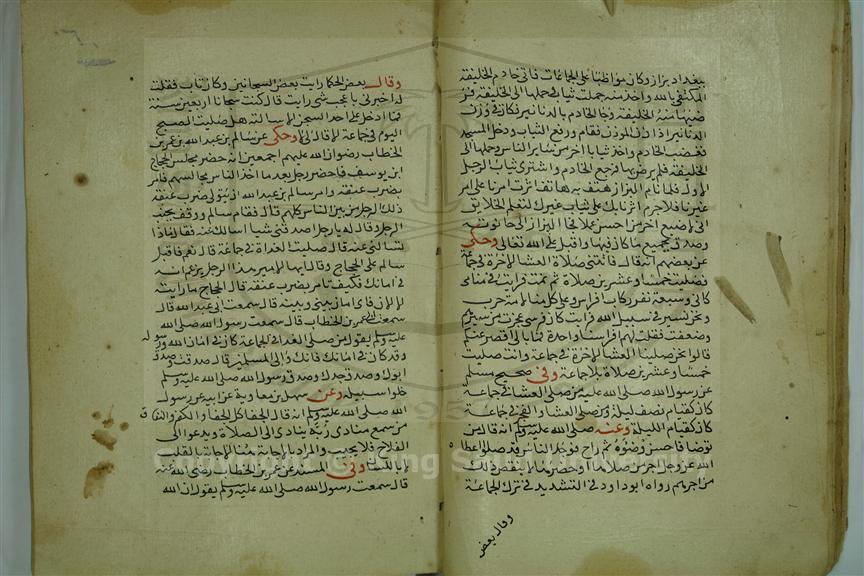 ببغداد بزاز وكان مواظبا على الجماعات فاتى خادم الخليفة
المكتفي بالله واخذ منه جملت ثياب حملها الى الخليفة فرضي
منها منه الخليفة وجا الخادم بالدنانير فكان في وزن
الدنانير اذ اذن الموذن فقام ورفع الثياب ودخل المسجد
فغضب الخادم واخذ ثيابا اخر من ساير الناس وحملها الى
الخليفة فلم يرضها فرجع الخادم واشترى ثياب الرجل
الاول فلما نام البزاز هتف به هاتف اثرت امرنا على امر
غيرنا فلا جرم اثرناك على ثياب غيرك لتعلم الخلايق
اني لا ضيع اجر من احسن عملا فجا البزاز الى حانوته
وصدق بجميع ما كان فيها واقبل على الله تعالى وحكى
عن بعضهم انه قال فاتتني صلاة العشا الاخرة في جماعة
فصليت خمسا وعشرين صلاة ثم نمت فرايت في منامي
كاني وسبعة نفر ركاب افراس وعلى كل منا لامة حرب
ونحن نسير في سبيل الله فرايت كان فرسي عجزت من سيرهم
وضعفت فقلت لهم افراسنا واحدة فما بالي اقصر عنكم
قالوا نحن صلينا العشا الاخرة في جماعة وانت صليت
خمسا وعشرين صلاة بلا جماعة وفي صحيح مسلم
عن رسول الله صلى الله عليه من صلى العشا في جماعة
كان كقيام نصف ليلة ومن صلى العشا والفجر في جماعة
كان كقيام الليلة وعنه صلى الله عليه وسلم انه قال من
توضا فاحسن وضوه ثم راح فوجد الناس قد صلوا اعطا
الله عز وجل اجر من صلاها او حضرها لا ينقص ذلك
من اجرهم رواه ابو داود في التشديد في ترك الجماعة
وقال بعض
وقال بعض الحكما رايت بعض السجانين وكان تاب فقلت
له اخبرني باعجب شي رايت قال كنت سجانا اربعين سنة
فما ادخل علي احد السجن الا سالته هل صليت الصبح
اليوم في جماعة الا قال لي لا وحكى عن سالم بن عبد الله بن عمر بن
الخطاب رضوان الله عليهم اجمعين انه حضر مجلس الحجاج
ابن يوسف فاحضر رجل بعد ما اخذ الناس مجالسهم فامر
بضرب عنقه وامر سالم بن عبد الله ان يتولى ضرب عنقه
ذلك الرجل من بين الناس كلهم قال فقام سالم ووقف بجنب
الرجل وقال له يا رجل اصدقني شيا اسالك عنه فقال ماذا
تسالني عنه قال صليت الغداة في جماعة قال نعم فاقبل
سالم على الحجاج وقال ايها الامير هذا الرجل يزعم انه
في امانك فكيف تامر بضرب عنقه قال الحجاج ما رايته
الا الان فاي امان بيني وبينه قال سمعت ابي عبد الله قال
سمعت ابي عمر بن الخطاب قال سمعت رسول الله صلى الله
عليه وسلم يقول من صلى الغدا في الجماعة كان في امان الله ورسوله
وقد كان في امانك فانك والي المسلمين قال صدقت وصدق
ابوك وصدق جدك وصدق رسول الله صلى الله عليه وسلم
خلوا سبيله وعن سهل بن معاوية عن ابيه عن رسول
الله صلى الله عليه وسلم انه قال الجفا كل الجفا والكفر والنفاق
من سمع منادي ربه ينادي الى الصلاة ويدعوا الى
الفلاح فلا يجيب والمراد بالاجابة هنا الاجابة بالقلب
لا باللسان وفي المسند عن عمر بن الخطاب رضي الله عنه
قال سمعت رسول الله صلى الله عليه وسلم يقول ان الله